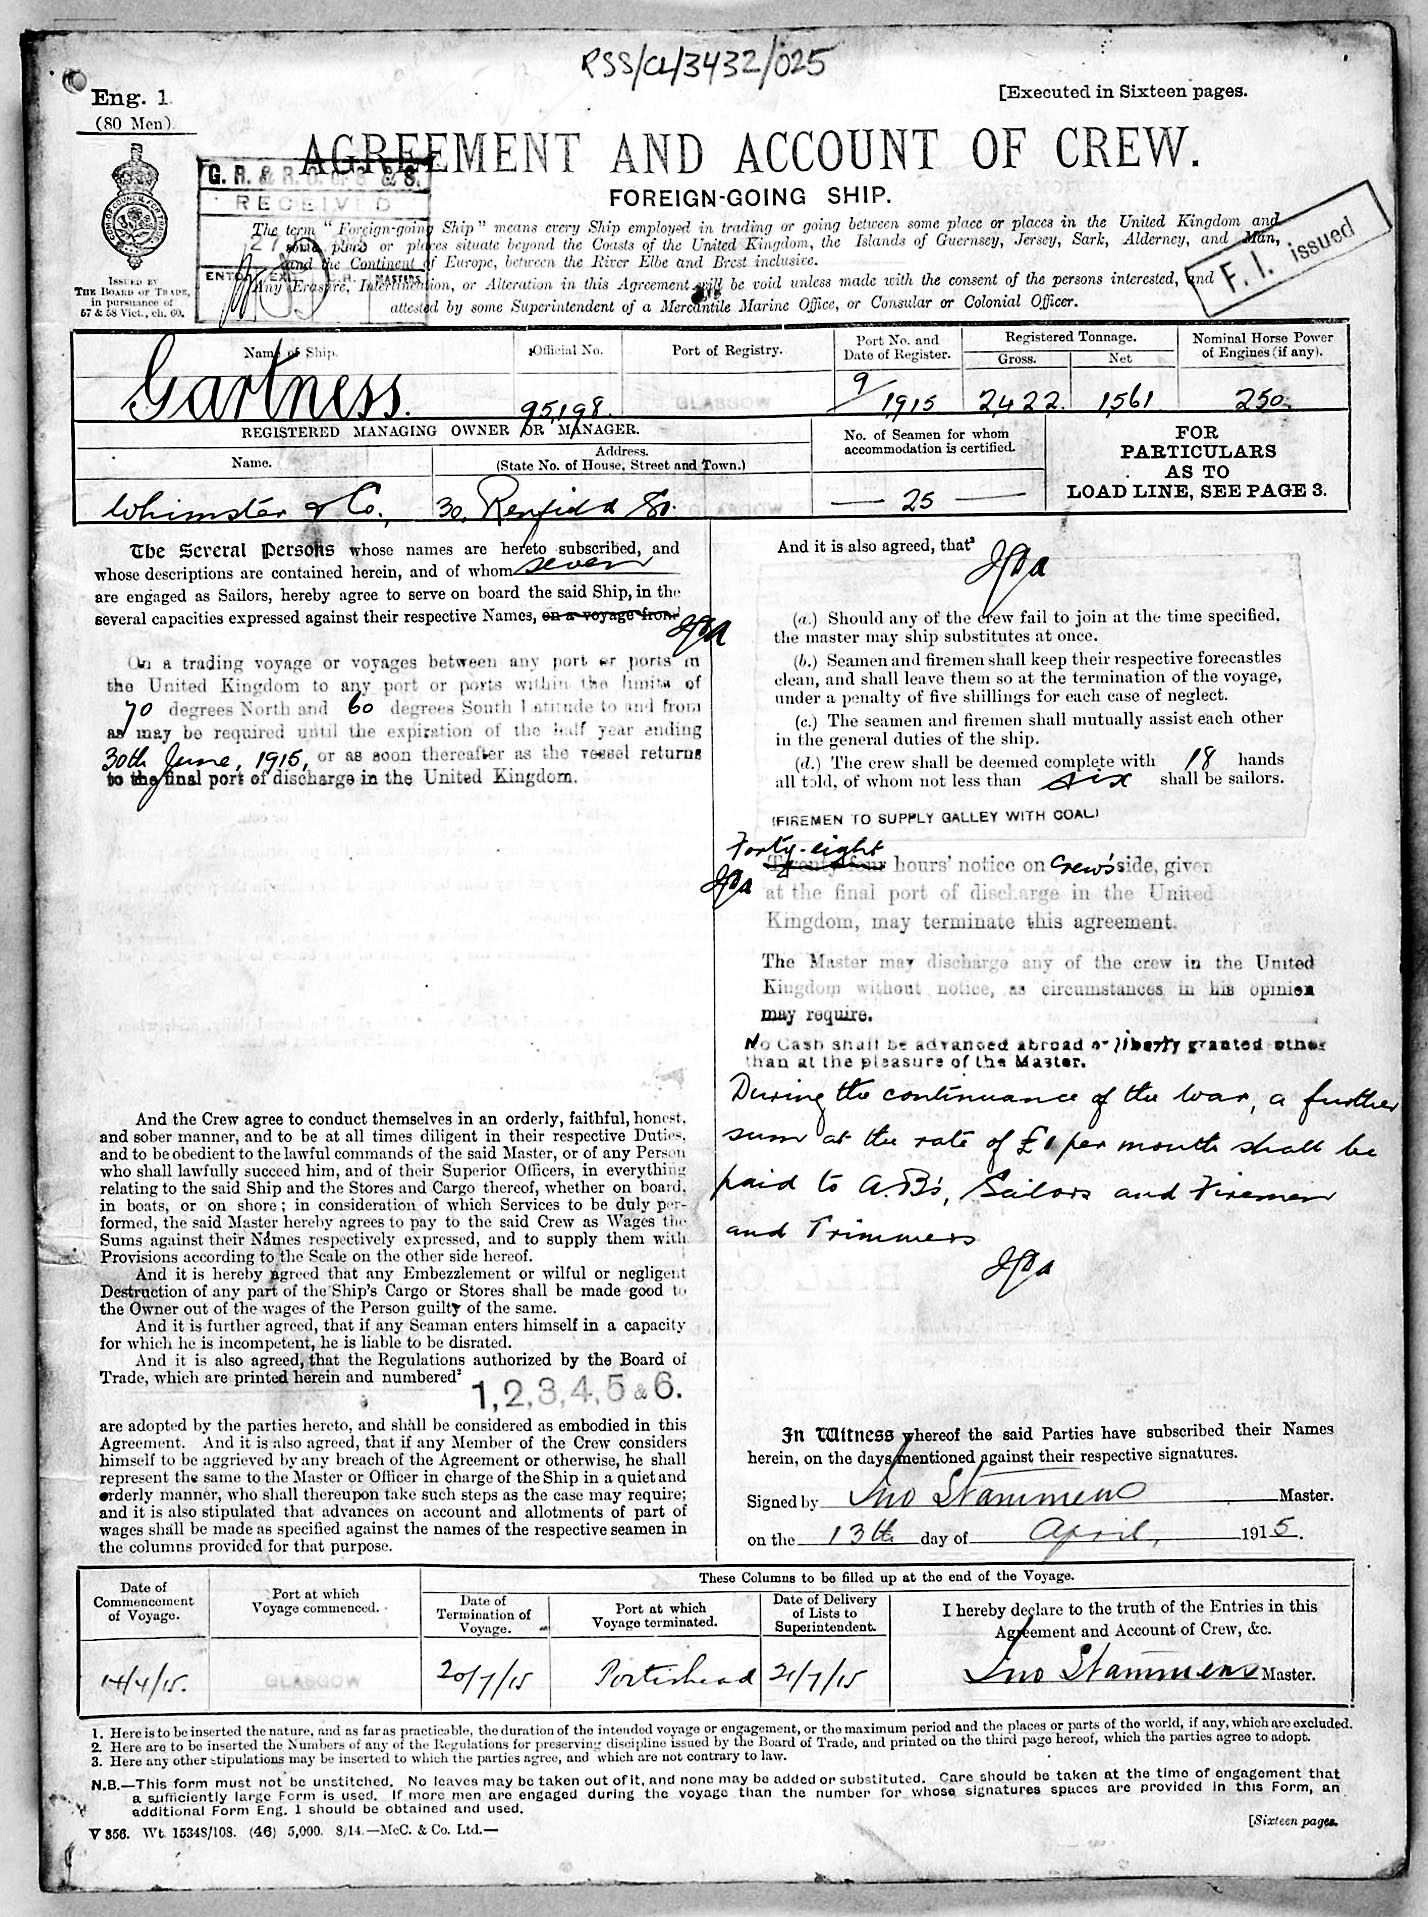 RSS/CL/3432/025
Eng. 1.
(80 Men).
[Executed in Sixteen pages.
AGREEMENT AND ACCOUNT OF CREW.
FOREIGN-GOING SHIP.
G. R. & R. O. of S. & S.
RECEIVED
ISSUED BY
THE BOARD OF TRADE,
in pursuance of
57 & 58 Vict., ch. 60.
The term "Foreign-going Ship" means every Ship employed in trading or going between some place or places in the United Kingdom and
some place or places situate beyond the Coasts of the United Kingdom, the Islands of Guernsey, Jersey, Sark, Alderney, and Man,
and the Continent of Europe, between the River Elbe and Brest inclusive.
Any Erasure, Interlineation, or Alteration in this Agreement will be void unless made with the consent of the persons interested, and
attested by some Superintendent of a Mercantile Marine Office, or Consular or Colonial Officer.
F. I. issued
Name of Ship.
Official No.
Port of Registry.
Port No. and
Date of Register.
Registered Tonnage.
Gross.
Net
Nominal Horse Power
of Engines (if any).
Gartness.
95,198.
GLASGOW
9/1915
2,422.
1,561.
250.
REGISTERED MANAGING OWNER OR MANAGER.
Name.
Address.
(State No. of House, Street and Town.)
No. of Seamen for whom
accommodation is certified.
FOR
PARTICULARS
AS TO
LOAD LINE, SEE PAGE 3.
Whimster & Co.,
30, Renfield St.
GLASGOW
— 25 —
The Several Persons whose names are hereto subscribed, and
whose descriptions are contained herein, and of whom seven
are engaged as Sailors, hereby agree to serve on board the said Ship, in the
several capacities expressed against their respective Names, on a voyage from¹
On a trading voyage or voyages between any port or ports in
the United Kingdom to any port or ports within the limits of
70 degrees North and 60 degrees South Latitude to and from
as may be required until the expiration of the half year ending
30th June, 1915, or as soon thereafter as the vessel returns
to the final port of discharge in the United Kingdom.
And the Crew agree to conduct themselves in an orderly, faithful, honest,
and sober manner, and to be at all times diligent in their respective Duties,
and to be obedient to the lawful commands of the said Master, or of any Person
who shall lawfully succeed him, and of their Superior Officers, in everything
relating to the said Ship and the Stores and Cargo thereof, whether on board,
in boats, or on shore; in consideration of which Services to be duly per-
formed, the said Master hereby agrees to pay to the said Crew as Wages the
Sums against their Names respectively expressed, and to supply them with
Provisions according to the Scale on the other side hereof.
And it is hereby agreed that any Embezzlement or wilful or negligent
Destruction of any part of the Ship's Cargo or Stores shall be made good to
the Owner out of the wages of the Person guilty of the same.
And it is further agreed, that if any Seaman enters himself in a capacity
for which he is incompetent, he is liable to be disrated.
And it is also agreed, that the Regulations authorized by the Board of
Trade, which are printed herein and numbered²
1, 2, 3, 4, 5 & 6.
are adopted by the parties hereto, and shall be considered as embodied in this
Agreement. And it is also agreed, that if any Member of the Crew considers
himself to be aggrieved by any breach of the Agreement or otherwise, he shall
represent the same to the Master or Officer in charge of the Ship in a quiet and
orderly manner, who shall thereupon take such steps as the case may require;
and it is also stipulated that advances on account and allotments of part of
wages shall be made as specified against the names of the respective seamen in
the columns provided for that purpose.
And it is also agreed, that³
(a.) Should any of the crew fail to join at the time specified,
the master may ship substitutes at once.
(b.) Seamen and firemen shall keep their respective forecastles
clean, and shall leave them so at the termination of the voyage,
under a penalty of five shillings for each case of neglect.
(c.) The seamen and firemen shall mutually assist each other
in the general duties of the ship.
(d.) The crew shall be deemed complete with 18 hands
all told, of whom not less than six shall be sailors.
(FIREMEN TO SUPPLY GALLEY WITH COAL)
Forty-eight
Twenty-four hours' notice on Crew's side, given
at the final port of discharge in the United
Kingdom, may terminate this agreement.
The Master may discharge any of the crew in the United
Kingdom without notice, as circumstances in his opinion
may require.
No Cash shall be advanced abroad or liberty granted other
than at the pleasure of the Master.
During the continuance of the war, a further
sum at the rate of £1 per month shall be
paid to A.B's, Sailors and Firemen
and Trimmers
In Witness whereof the said Parties have subscribed their Names
herein, on the days mentioned against their respective signatures.
Signed by Jno Stammers Master.
on the 13th day of April, 1915.
Date of
Commencement
of Voyage.
Port at which
Voyage commenced.
These Columns to be filled up at the end of the Voyage.
Date of
Termination of
Voyage.
Port at which
Voyage terminated.
Date of Delivery
of Lists to
Superintendent.
I hereby declare to the truth of the Entries in this
Agreement and Account of Crew, &c.
14/4/15.
GLASGOW
20/7/15
Portishead
21/7/15
Jno Stammers Master.
1. Here is to be inserted the nature, and as far as practicable, the duration of the intended voyage or engagement, or the maximum period and the places or parts of the world, if any, which are excluded.
2. Here are to be inserted the Numbers of any of the Regulations for preserving discipline issued by the Board of Trade, and printed on the third page hereof, which the parties agree to adopt.
3. Here any other stipulations may be inserted to which the parties agree, and which are not contrary to law.
N.B.—This form must not be unstitched. No leaves may be taken out of it, and none may be added or substituted. Care should be taken at the time of engagement that
a sufficiently large Form is used. If more men are engaged during the voyage than the number for whose signatures spaces are provided in this Form, an
additional Form Eng. 1 should be obtained and used.
V 356. Wt. 15348/108. (46) 5,000. 8/14.—McC. & Co. Ltd.—
[Sixteen pages.